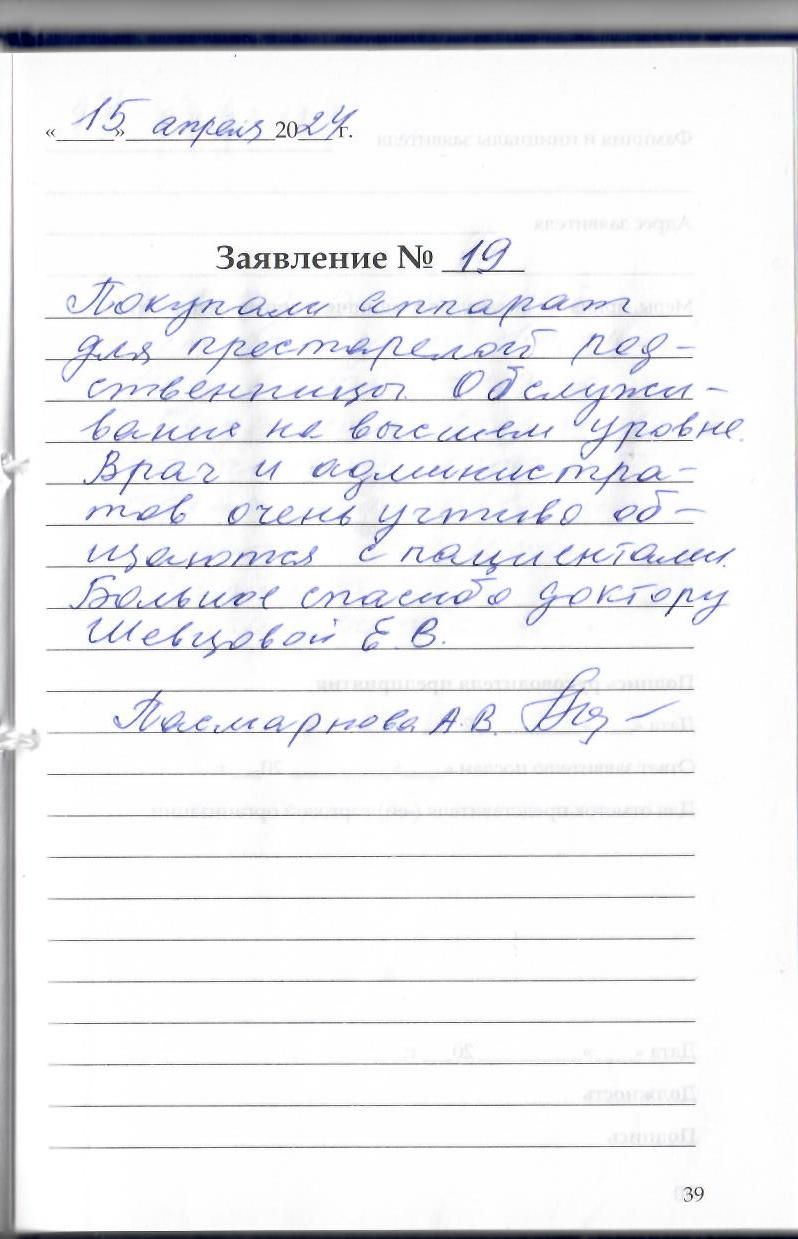 «15» апреля 2024 г.
Заявление № 19
Покупали аппарат
для престарелой род-
ственницы. Обслужи-
вание на высшем уровне.
Врач и администра-
тов очень учтиво об-
щаются с пациентами.
Большое спасибо доктору
Шевцовой Е.В.
А.В.
39